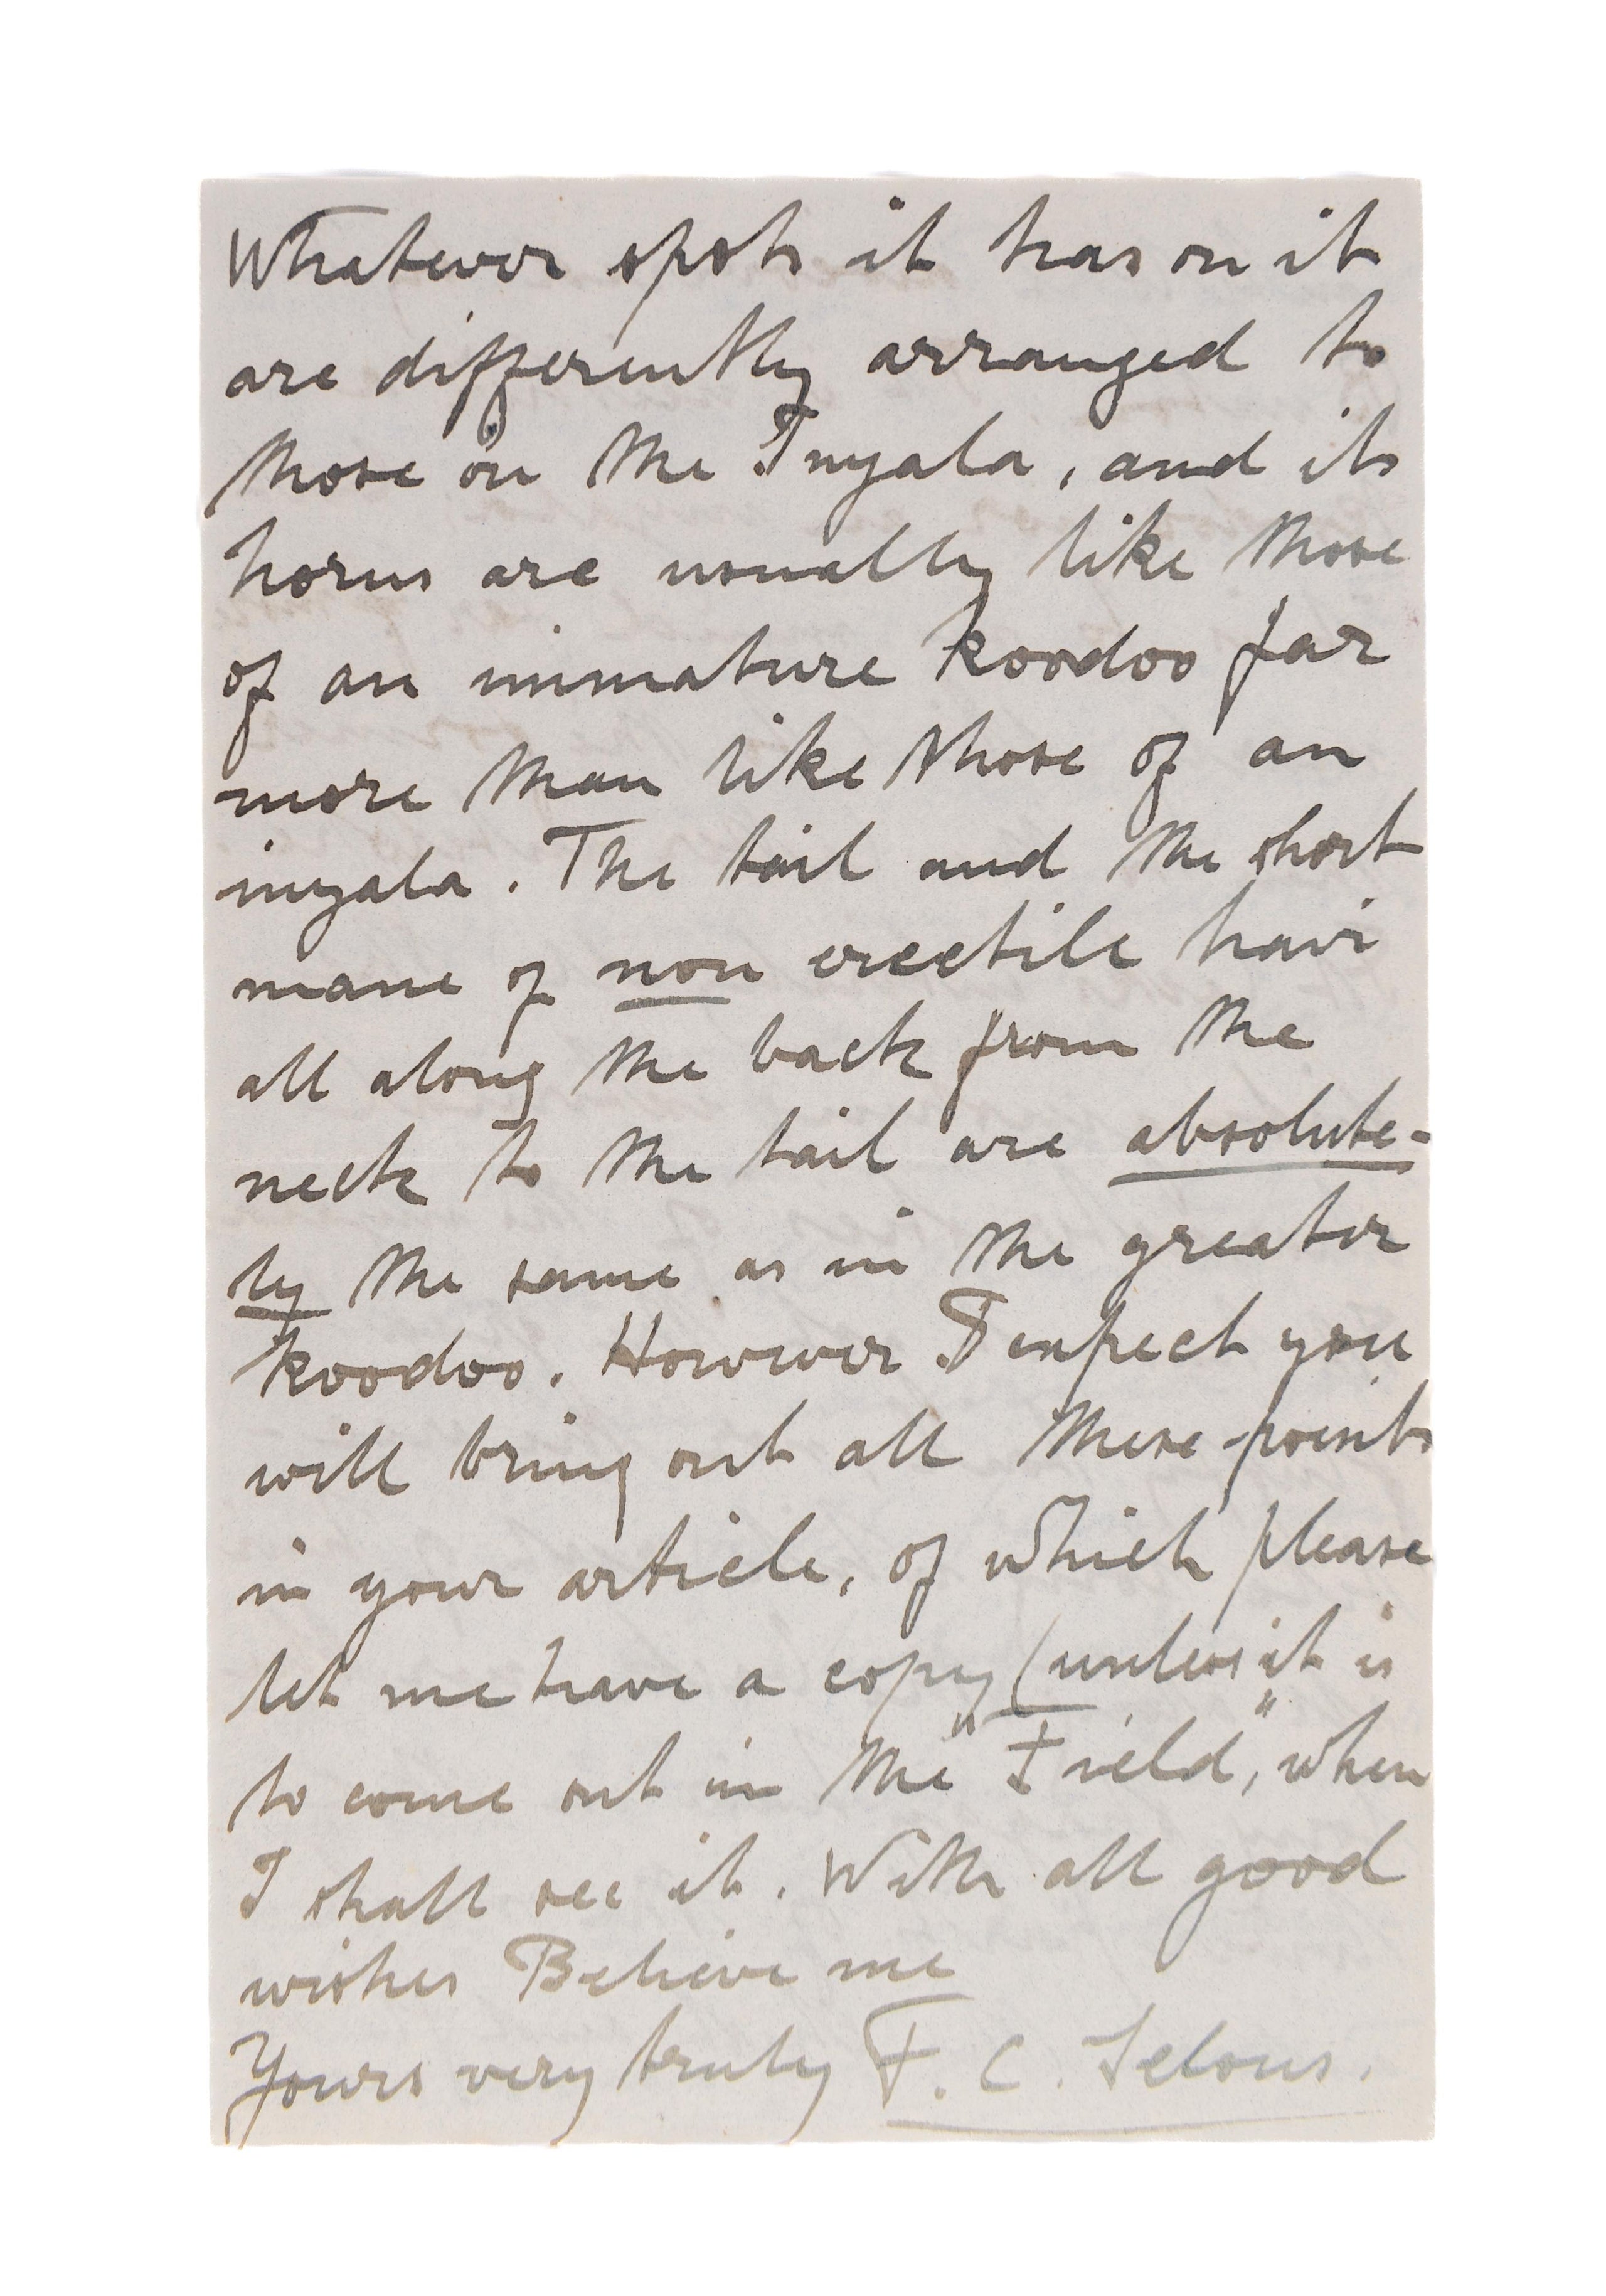 Whatever spots it has on it
are differently arranged to
those on the Inyala, and its
horns are usually like those
of an immature koodoo far
more than like those of an
inyala. The tail and the short
mane of non erectile hair
all along the back from the
neck to the tail are absolute-
ly the same as in the greater
koodoo. However I expect you
will bring out all these points
in your article, of which please
let me have a copy (unless it is
to come out in the "Field", when
I shall see it. With all good
wishes Believe me
Yours very truly F. C. Selous.